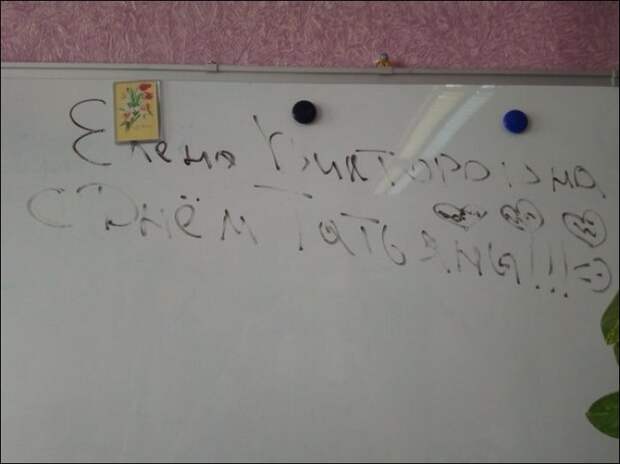 Елена Викторовна
С Днём Татьяны!!!